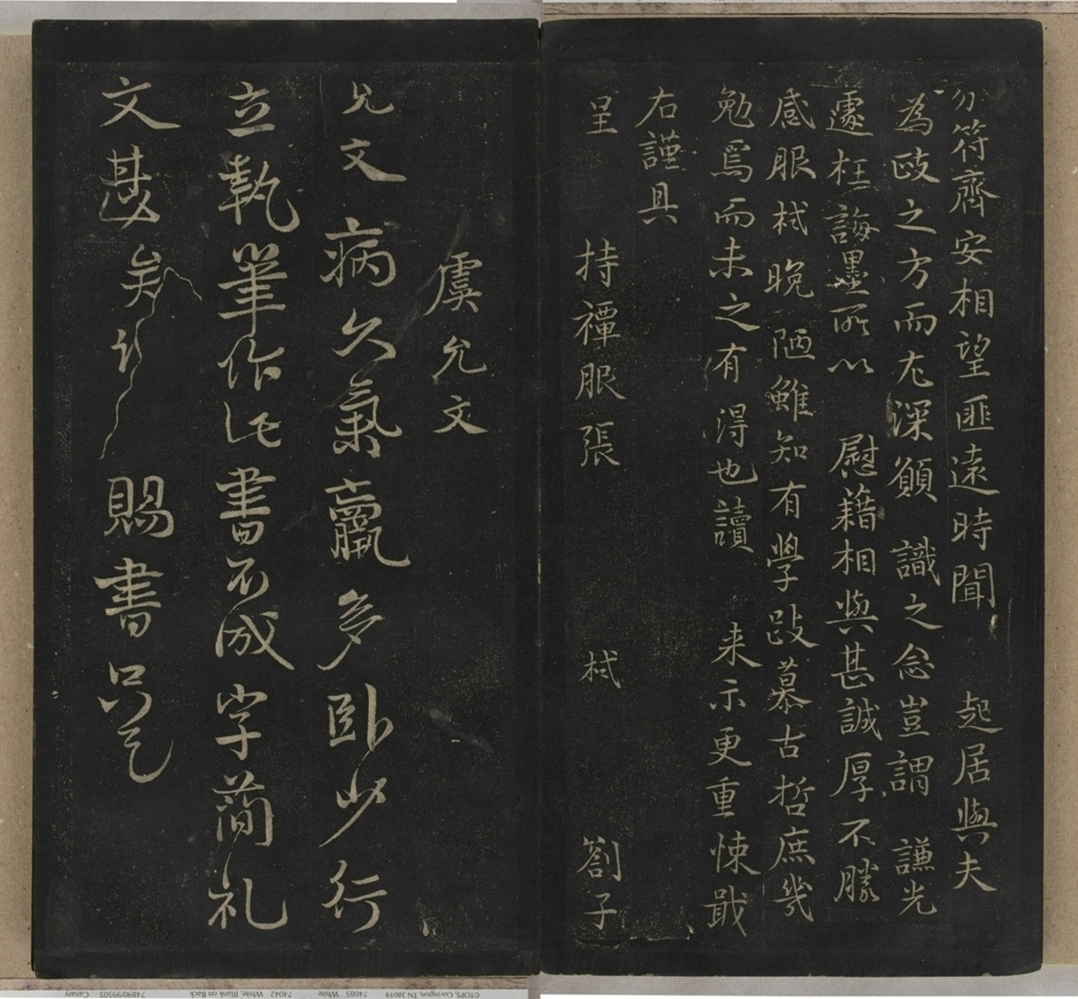 分符齊安相望匪遠時聞 起居與夫
為政之方而尤深願 識之念豈謂 謙光
遽枉誨墨所以 慰藉相與甚誠厚不勝
感服栻晚陋雖知有學敢慕古哲庶幾
勉焉而未之有得也讀 来示更重悚戢
右謹具
呈 持禫服張 栻 劄子
虞允文
允文病久氣羸多卧少行
立執筆作此書不成字簡礼
文甚矣 賜書只乞